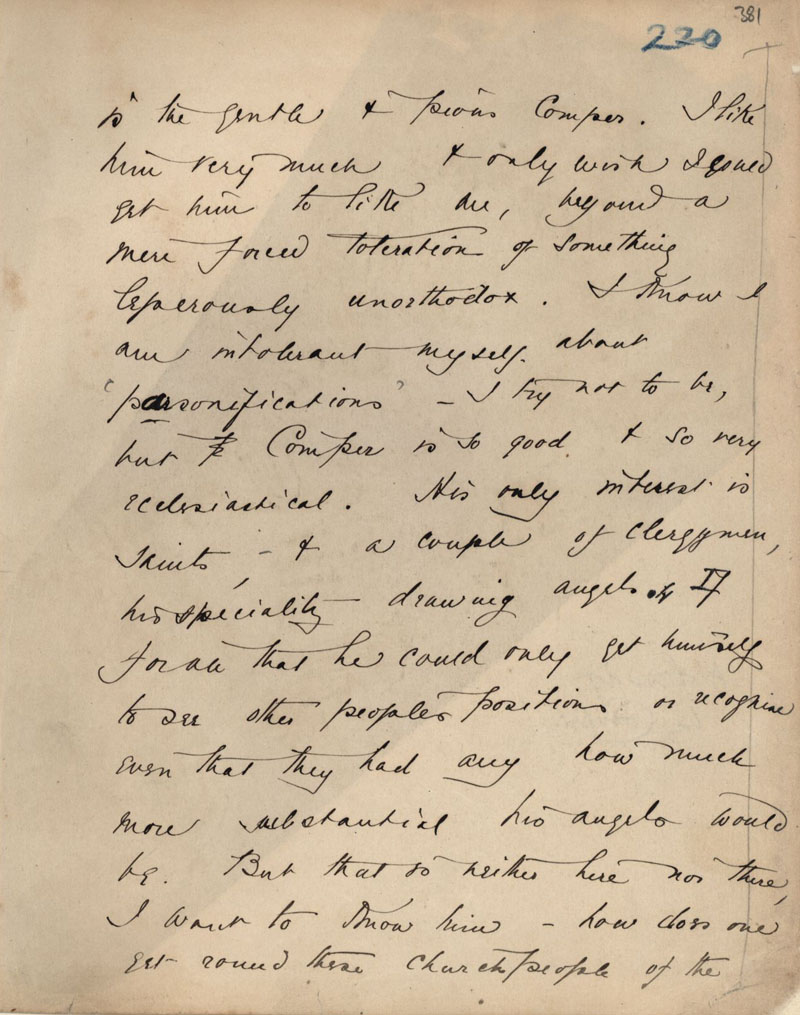 381
220
is the gentle & pious Comper. I like
him very much & only wish I could
get him to like me, beyond a
mere forced toleration of something
leperously unorthodox. I know I
am intolerant myself. about
'parsonifications' - I try not to be,
but Comper is so good & so very
ecclesiastical. His only interest is
Saints, - & a couple of clergymen,
his speciality drawing angels. If
for all that he could only get himself
to see other people's positions or recognise
even that they had any how much
more substantial his angels would
be. But that is neither here nor there,
I want to know him - how does one
get round these churchpeople of the